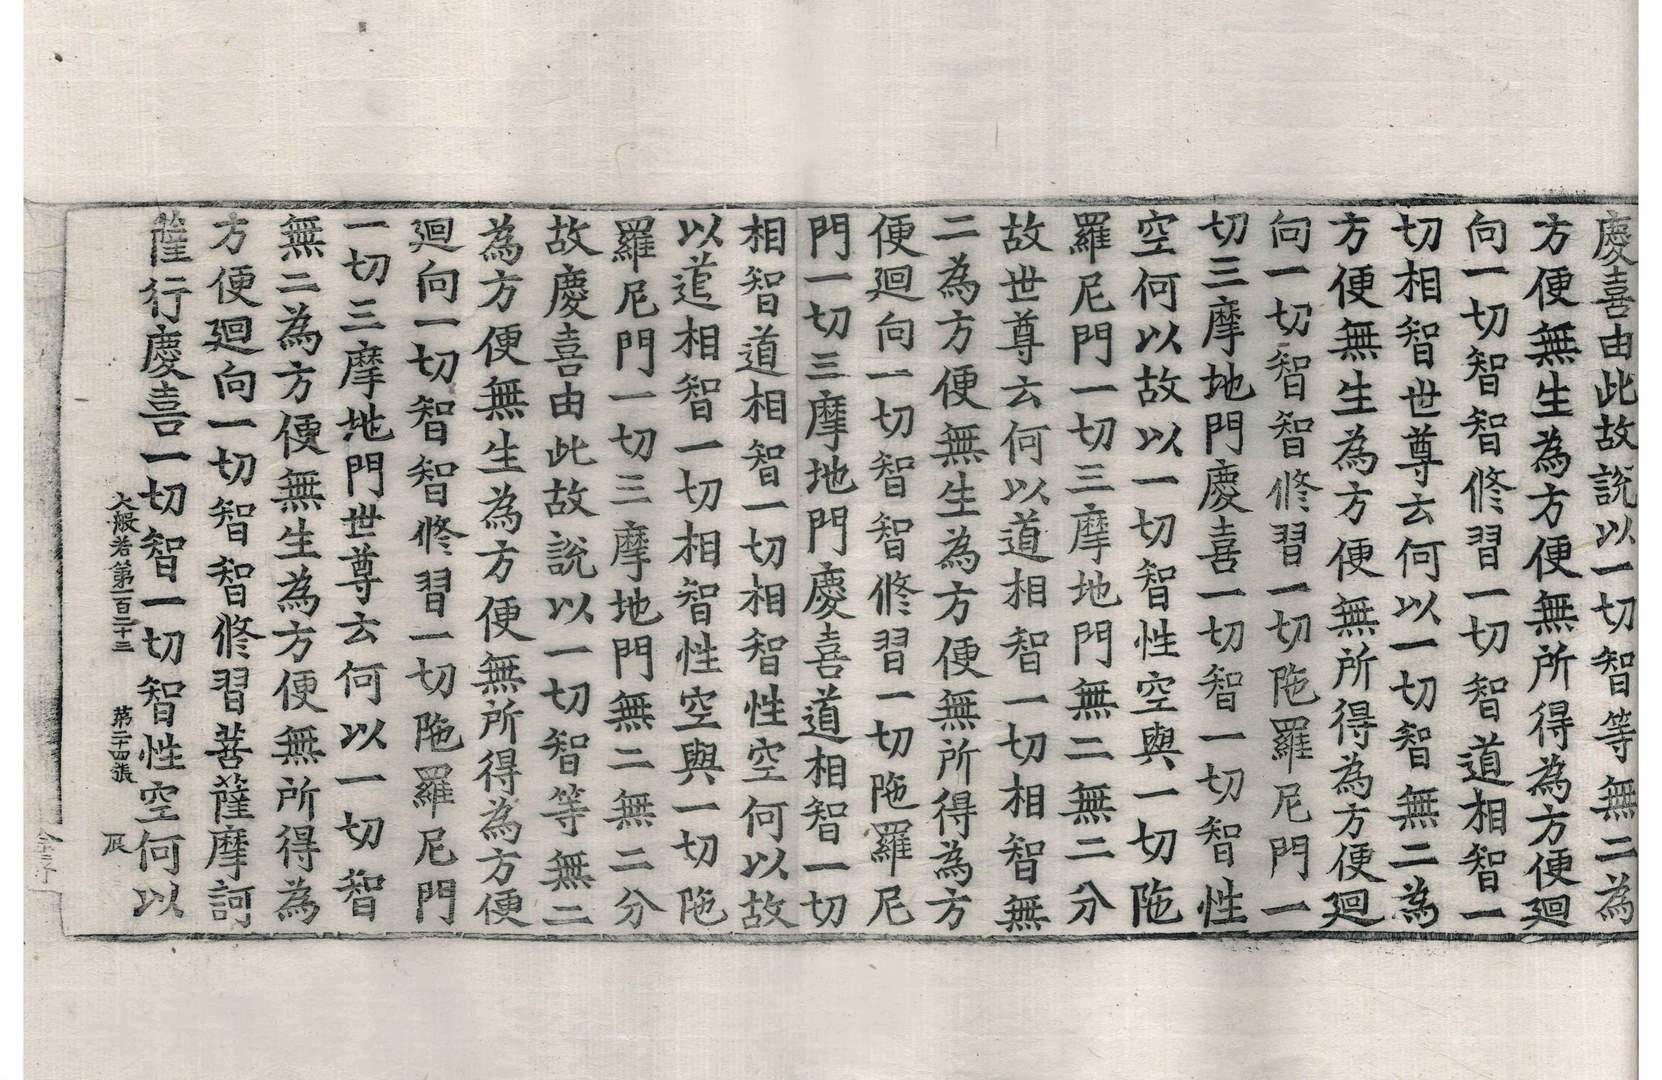 慶喜由此故說以一切智等無二為
方便無生為方便無所得為方便廻
向一切智智修習一切智道相智一
切相智世尊云何以一切智無二為
方便無生為方便無所得為方便廻
向一切智智修習一切陁羅尼門一
切三摩地門慶喜一切智一切智性
空何以故以一切智性空與一切陁
羅尼門一切三摩地門無二無二分
故世尊云何以道相智一切相智無
二為方便無生為方便無所得為方
便廻向一切智智修習一切陁羅尼
門一切三摩地門慶喜道相智一切
相智道相智一切相智性空何以故
以道相智一切相智性空與一切陁
羅尼門一切三摩地門無二無二分
故慶喜由此故說以一切智等無二
為方便無生為方便無所得為方便
廻向一切智智修習一切陁羅尼門
一切三摩地門世尊云何以一切智
無二為方便無生為方便無所得為
方便廻向一切智智修習菩薩摩訶
薩行慶喜一切智一切智性空何以
大般若第一百二十三 第二十四張 辰